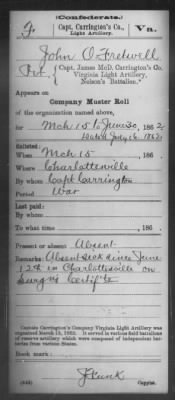 (Confederate.)
F Capt. Carrington's Co., Light Artillery. Va.
John O Fretwell
Pvt. { Capt. James McD. Carrington's Co. Virginia Light Artillery, Nelson's Battalion.*
Appears on
Company Muster Roll
of the organization named above,
for Mch 15 to June 30, 1862
Dated July 16, 1862
Enlisted:
When Mch 15, 186 .
Where Charlottesville
By whom Capt Carrington
Period War
Last paid:
By whom
To what time , 186 .
Present or absent Absent
Remarks: Absent sick since June
12th in Charlottesville on
Surg'ns Certif'te
Captain Carrington's Company Virginia Light Artillery was
organized March 15, 1862. It served in various field battalions
of reserve artillery which were composed of independent batteries
from various States.
Book mark:
J Runk
(642) Copyist.